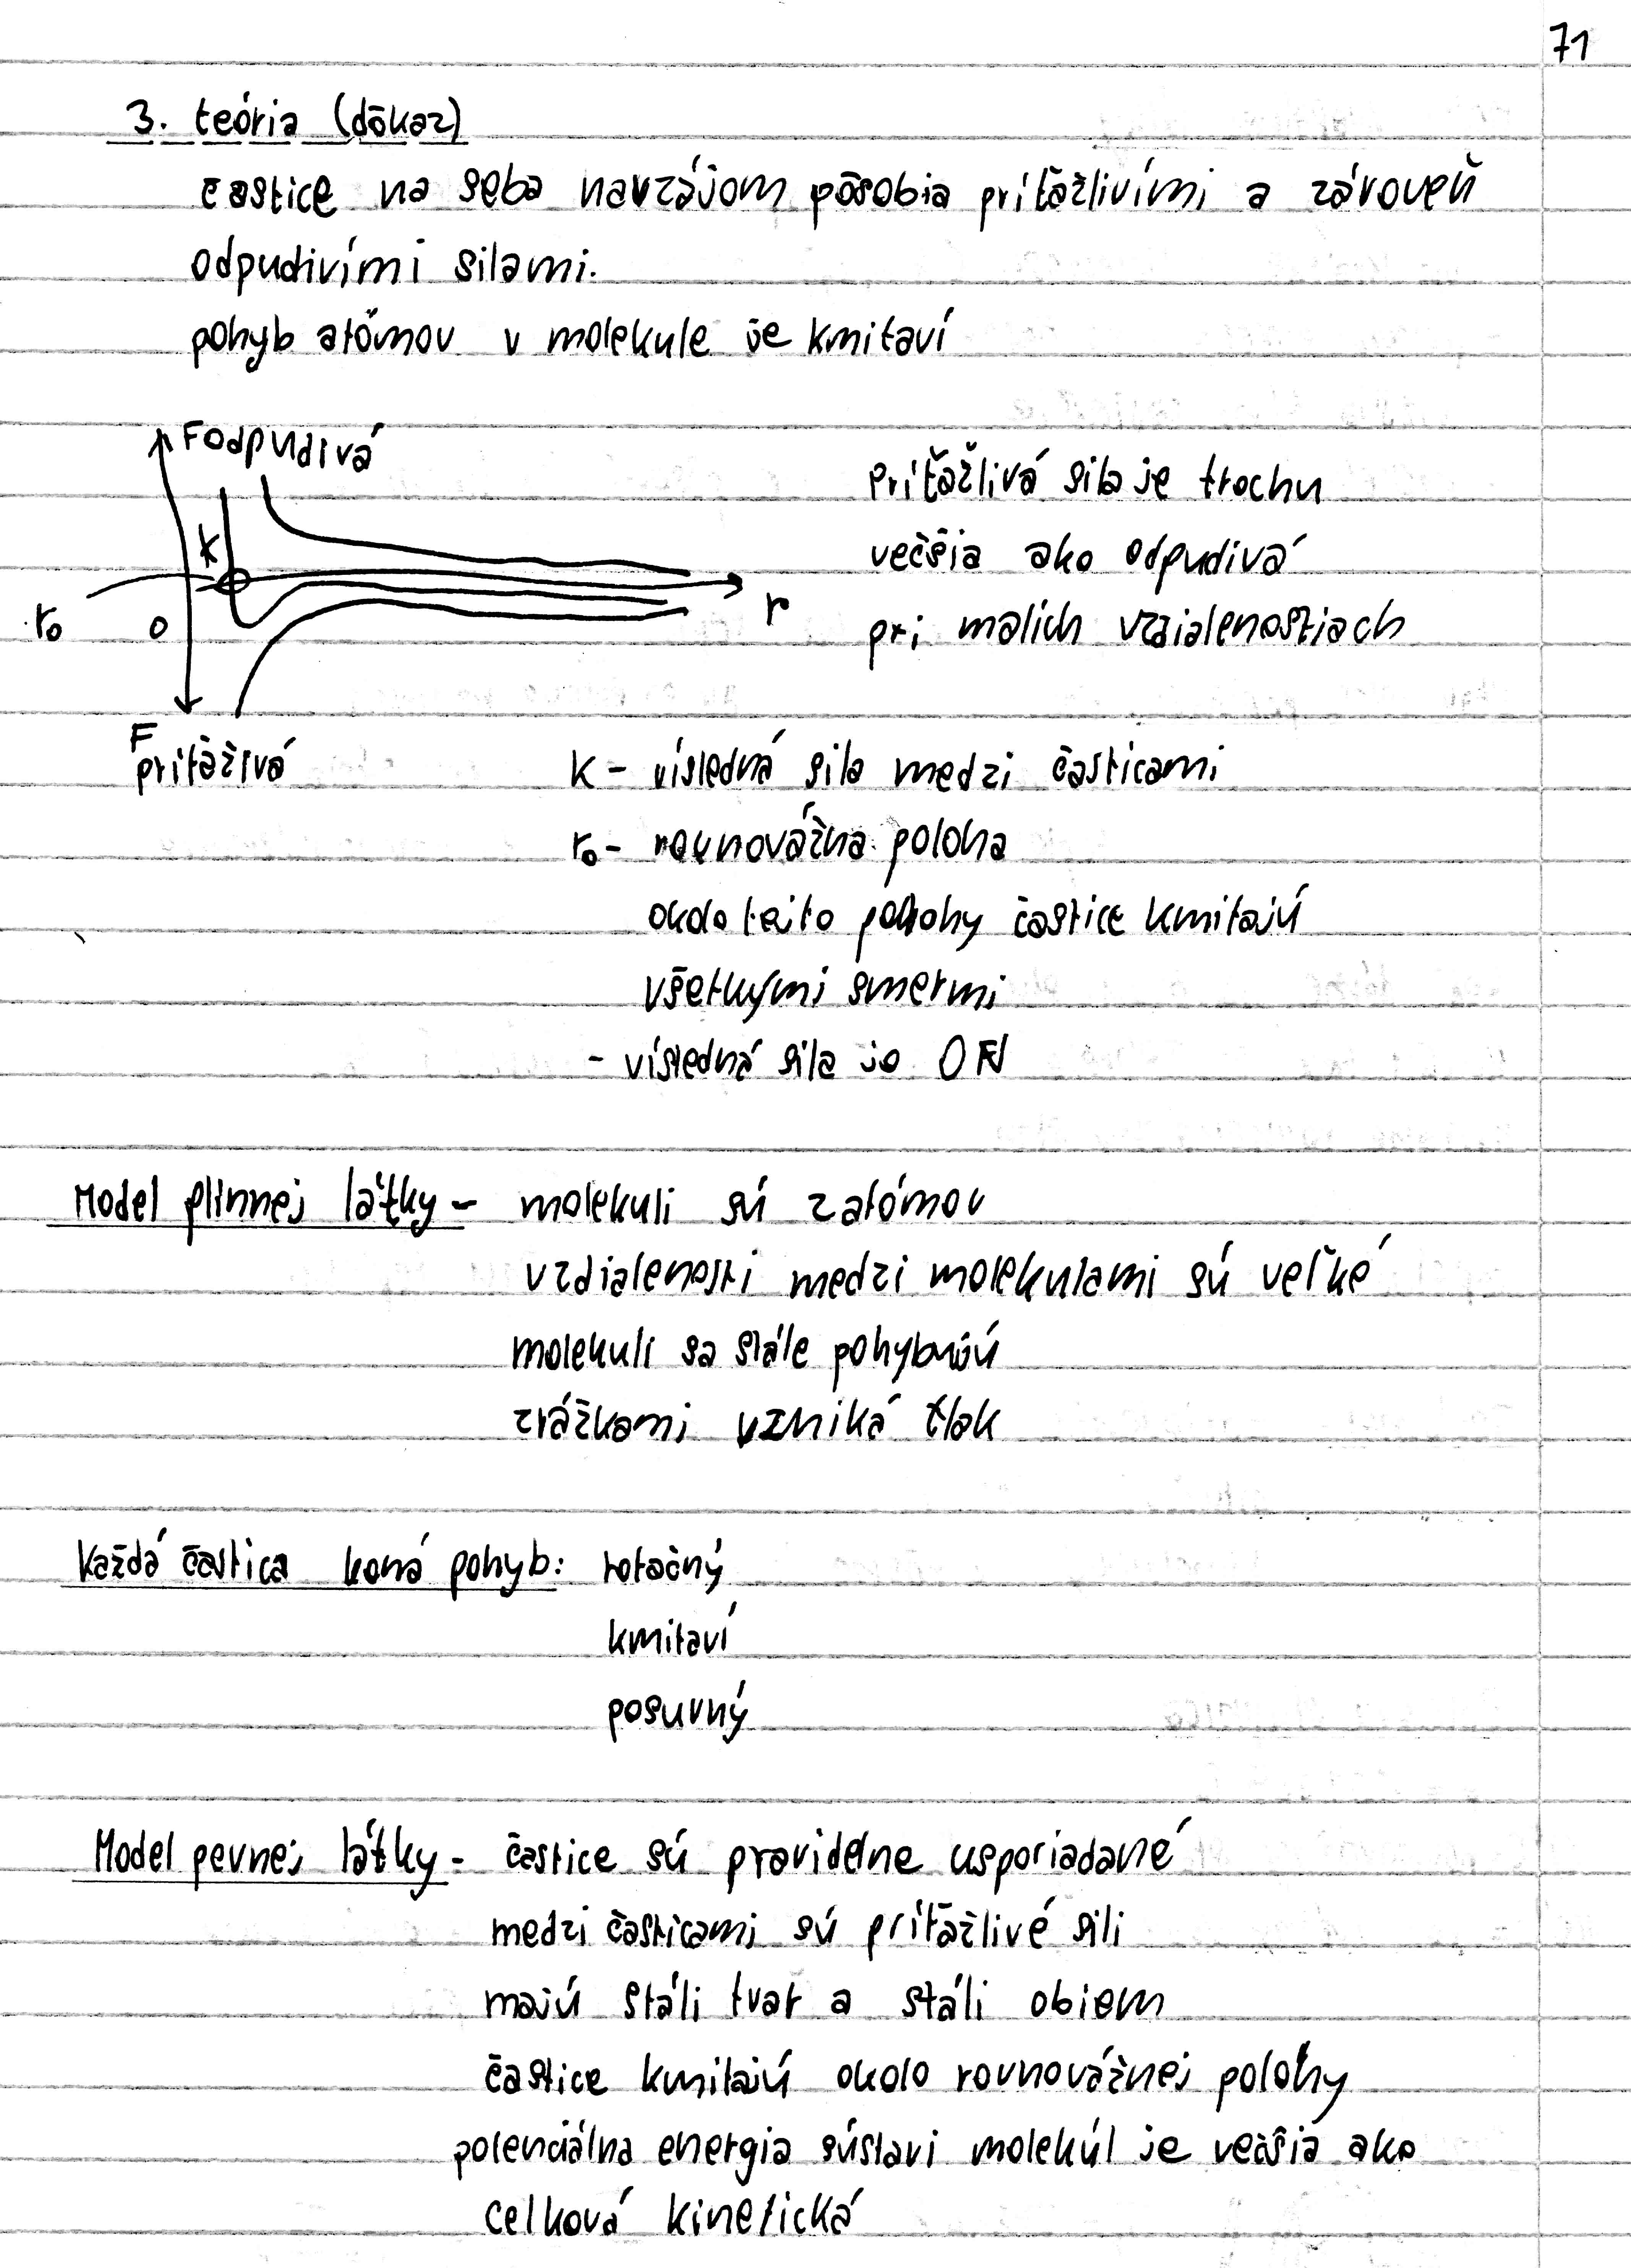 71
3. teória (dôkaz)
častice na seba navzájom pôsobia príťažlivími a zároveň
odpudivími silami.
pohyb atómov v molekule je kmitaví
Fodpudivá
príťažlivá sila je trochu
k
večšia ako odpudivá
r₀ 0 r
pri malích vzdialenostiach
F
priťaživá
k - vísledná sila medzi časticami
r₀ - rovnovážna poloha
okolo tejto polohy častice kmitajú
všetkými smermi
- vísledná sila je 0 N
Model plinnej látky - molekuli sú z atómov
vzdialenosti medzi molekulami sú veľké
molekuli sa stále pohybujú
zrážkami vzniká tlak
Každá častica koná pohyb: rotačný
kmitaví
posuvný
Model pevnej látky - častice sú pravidelne usporiadané
medzi časticami sú príťažlivé sili
majú stáli tvar a stáli objem
častice kmitajú okolo rovnovážnej polohy
potenciálna energia sústavi molekúl je večšia ako
celková kinetická